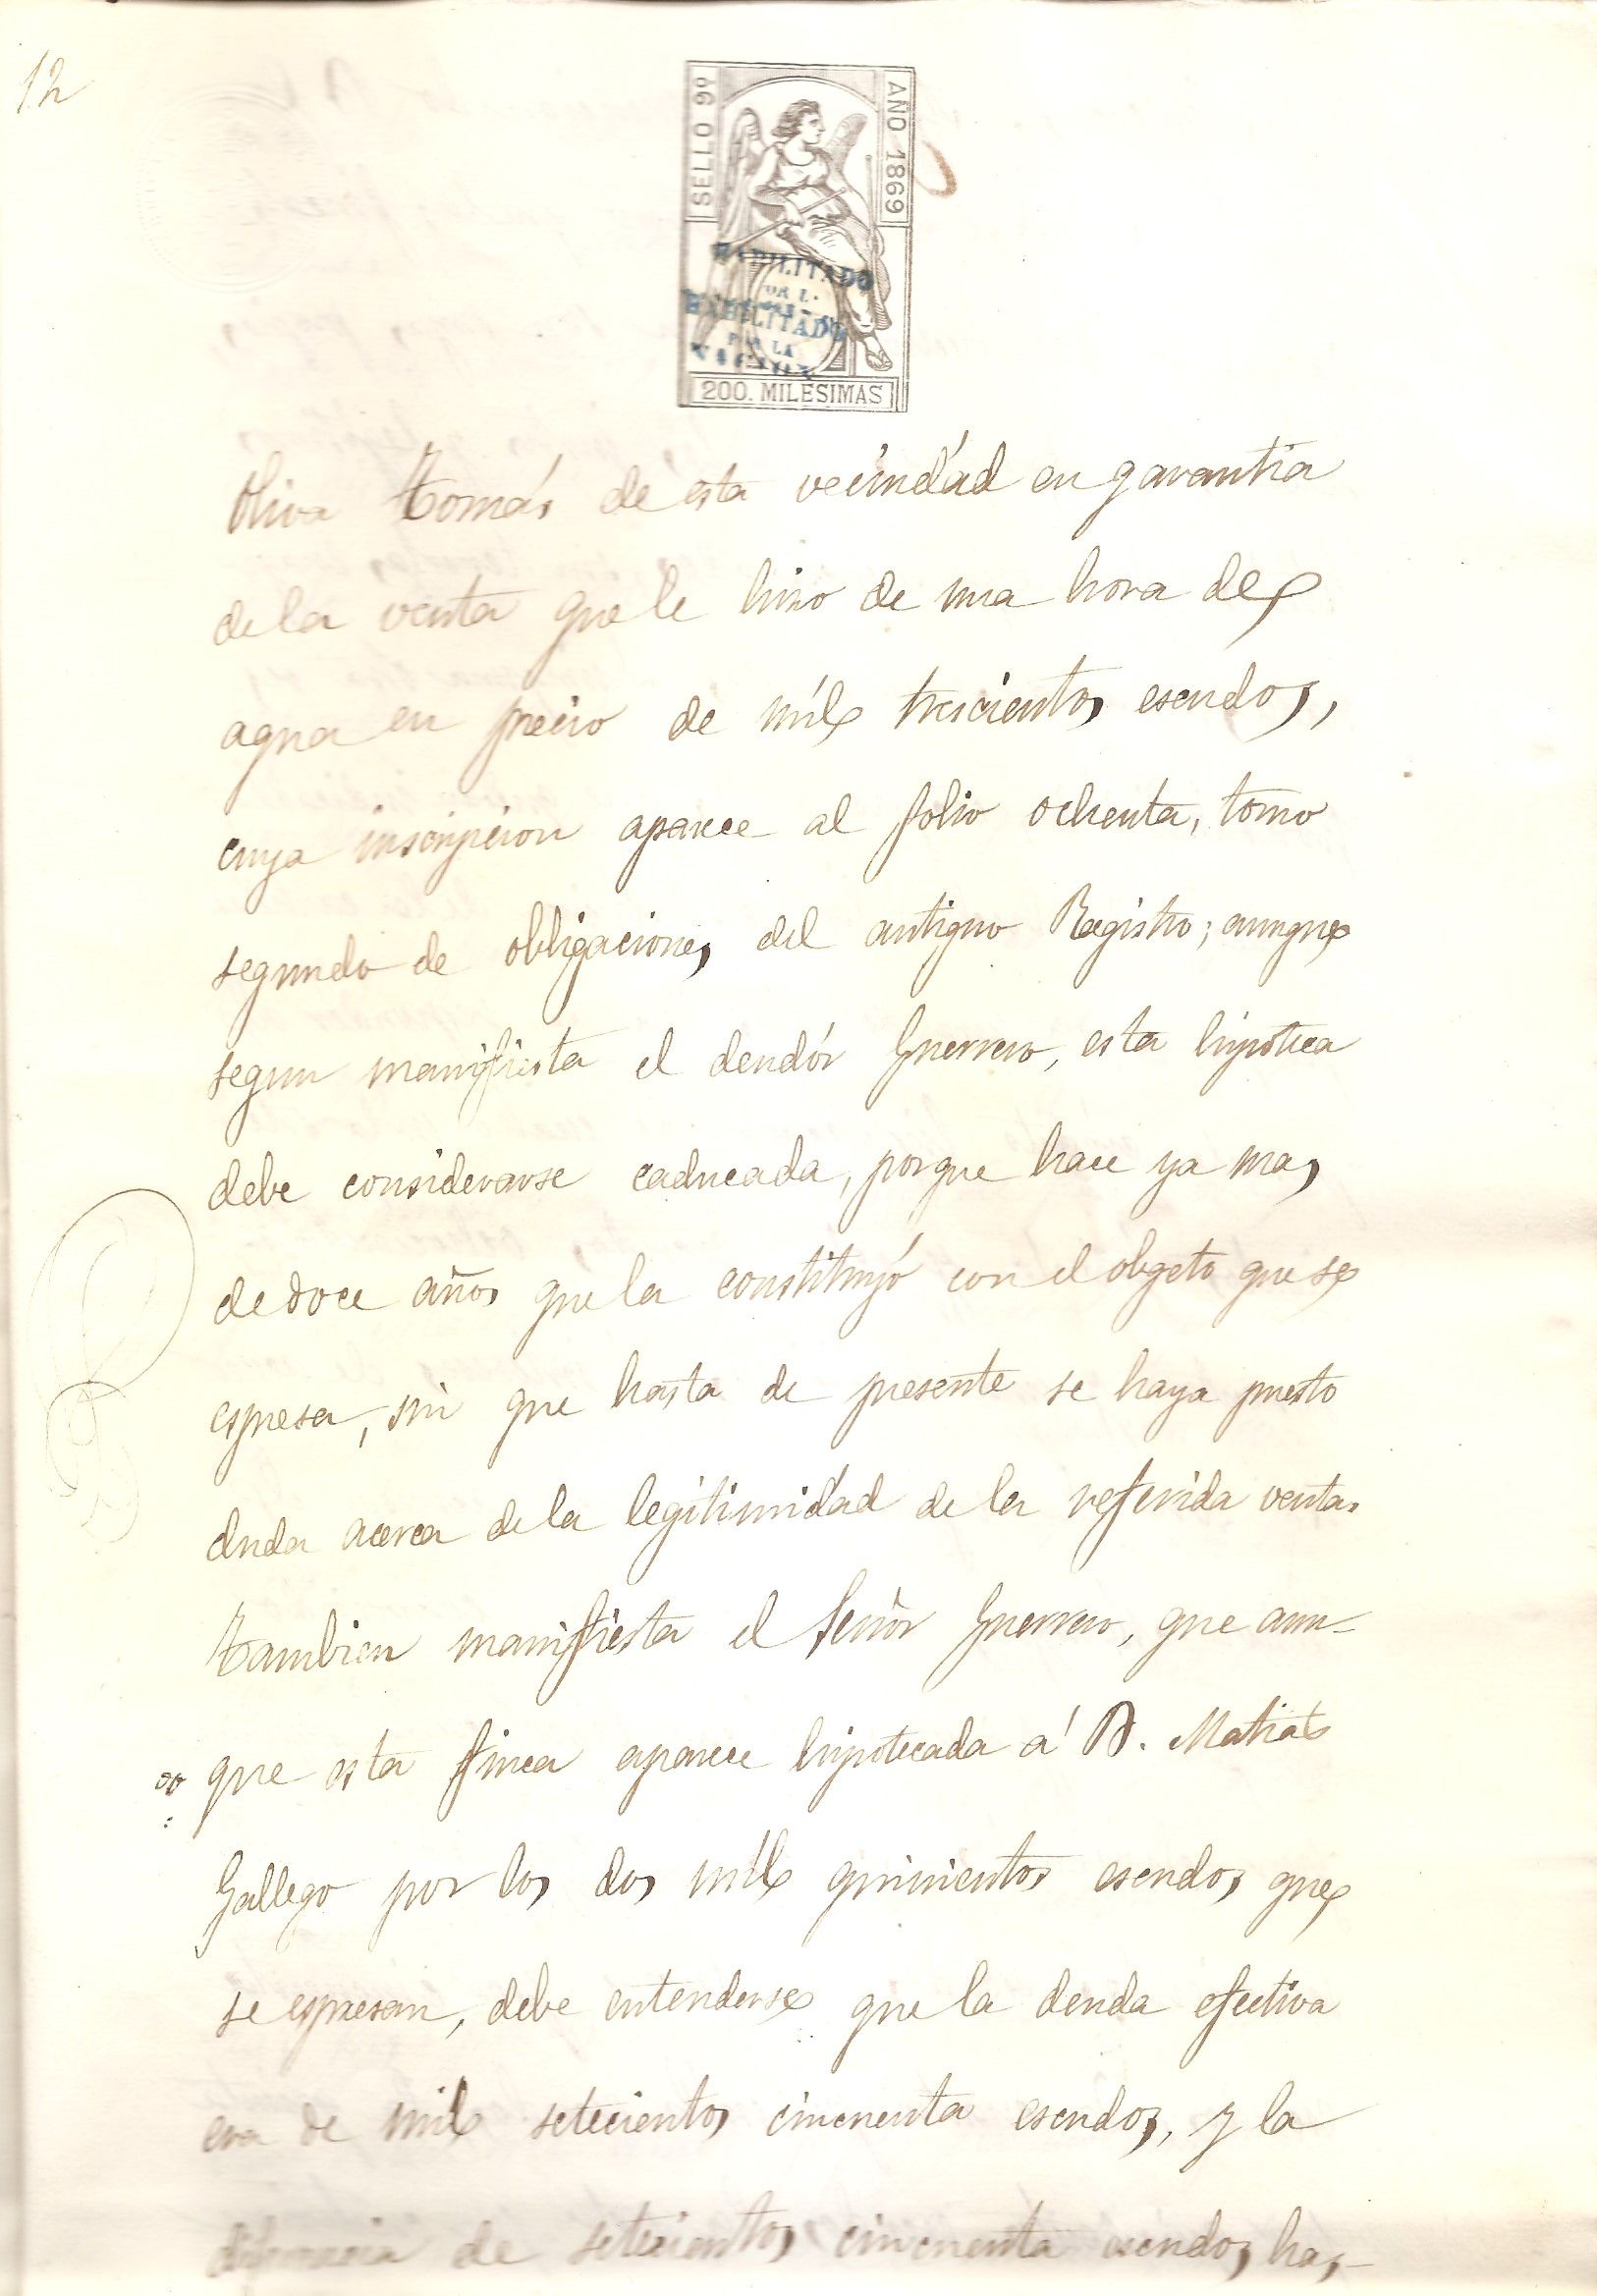 12
SELLO 9º
AÑO 1869
HABILITADO
POR LA
HABILITADO
POR LA
NACION
200. MILESIMAS
Oliva Tomás de esta vecindád en garantia
de la venta que le hizo de una hora de
agua en precio de mil trescientos escudos,
cuya inscripcion aparece al folio ochenta, tomo
segundo de obligaciones del antiguo Registro; aunque
segun manifiesta el deudór Guerrero, esta hipoteca
debe considerarse caducada, porque hace ya mas
de doce años que la constituyó con el obgeto que se
espresa, sin que hasta de presente se haya puesto
duda acerca de la legitimidád de la referida venta.
Tambien manifiesta el Señor Guerrero, que aun-
que esta finca aparece hipotecada á D. Matias
Gallego por los dos mil quinientos escudos que
se espresan, debe entenderse que la deuda efectiva
era de mil setecientos cincuenta escudos, y la
diferencia de setecientos cincuenta escudos has-